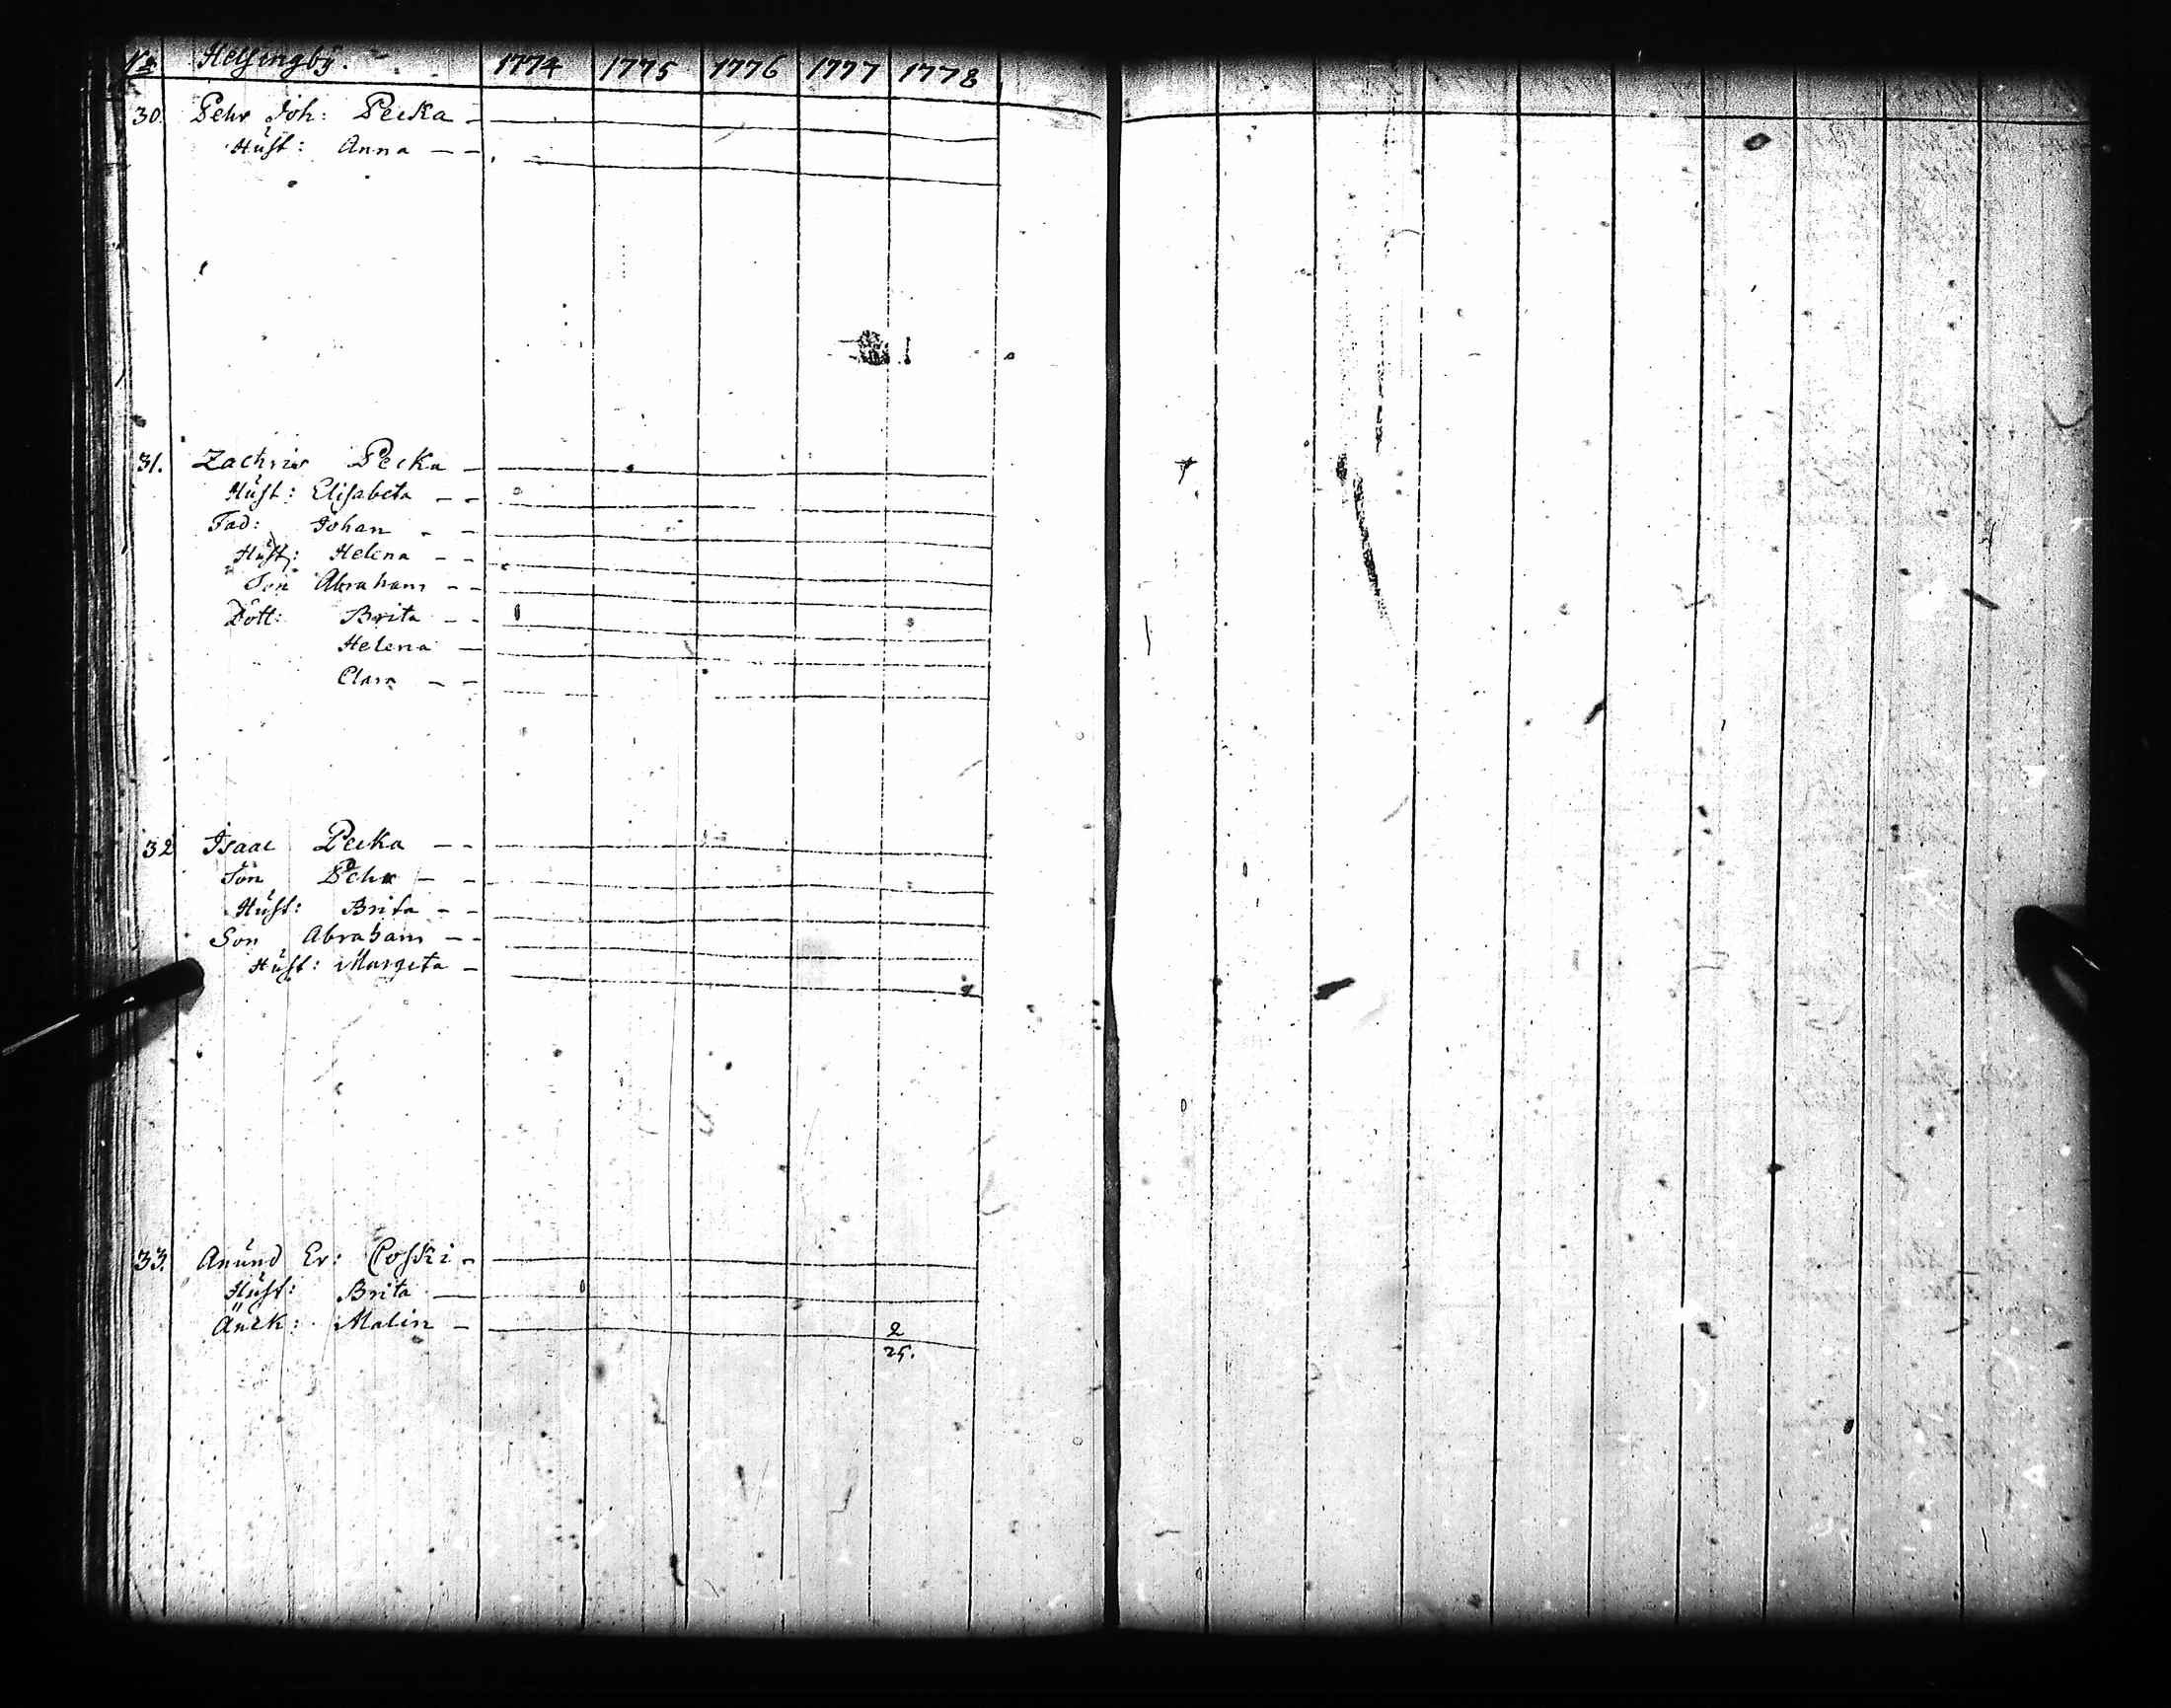 No Helsingby. 1774 1775 1776 1777 1778
30. Pehr Joh: Pecka
Hust: Anna
31. Zachris Pecka
Hust: Elisabeta
Fad: Johan
Hust: Helena
Son Abraham
Dött: Brita
Helena
Clara
32 Isaac Pecka
Son Pehr
Hust: Brita
Son Abraham
Hust: Margeta
33. Anund Er: Coski
Hust: Brita
Änck: Malin 2
25.